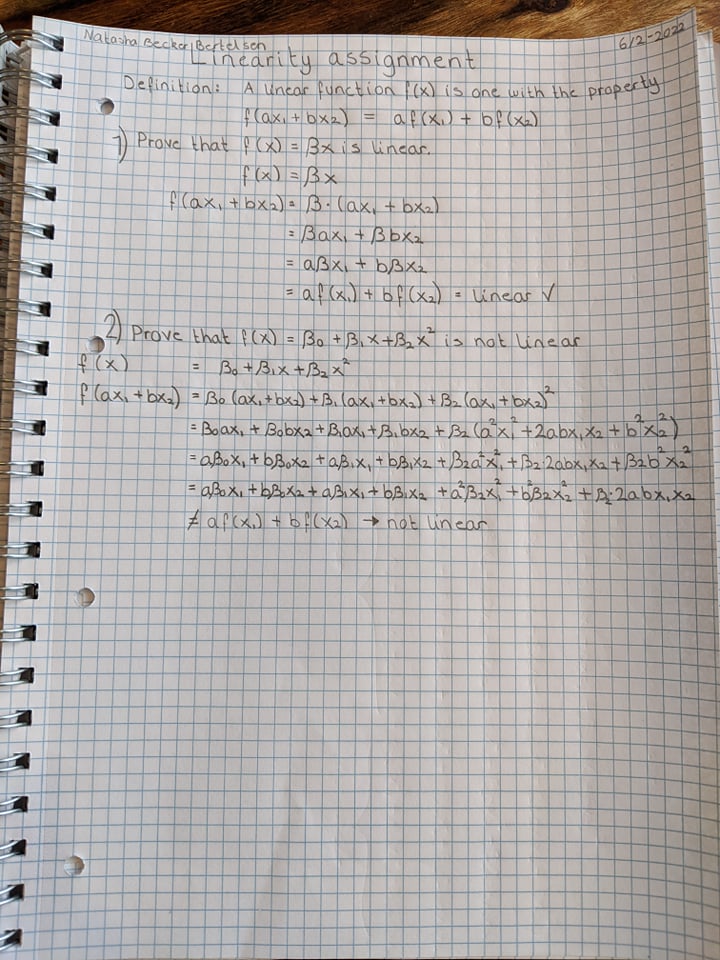 Natasha Becker Bertelsen
6/2-2022
Linearity assignment
Definition: A linear function f(x) is one with the property
f(ax₁ + bx₂) = af(x₁) + bf(x₂)
1) Prove that f(x) = βx is linear.
f(x) = βx
f(ax₁ + bx₂) = β·(ax₁ + bx₂)
= βax₁ + βbx₂
= aβx₁ + bβx₂
= af(x₁) + bf(x₂) = linear √
2) Prove that f(x) = β₀ + β₁x + β₂x² is not linear
f(x) = β₀ + β₁x + β₂x²
f(ax₁ + bx₂) = β₀(ax₁ + bx₂) + β₁(ax₁ + bx₂) + β₂(ax₁ + bx₂)²
= β₀ax₁ + β₀bx₂ + β₁ax₁ + β₁bx₂ + β₂(a²x₁² + 2abx₁x₂ + b²x₂²)
= aβ₀x₁ + bβ₀x₂ + aβ₁x₁ + bβ₁x₂ + β₂a²x₁² + β₂·2abx₁x₂ + β₂b²x₂²
= aβ₀x₁ + bβ₀x₂ + aβ₁x₁ + bβ₁x₂ + a²β₂x₁² + b²β₂x₂² + β₂·2abx₁x₂
≠ af(x₁) + bf(x₂) → not linear